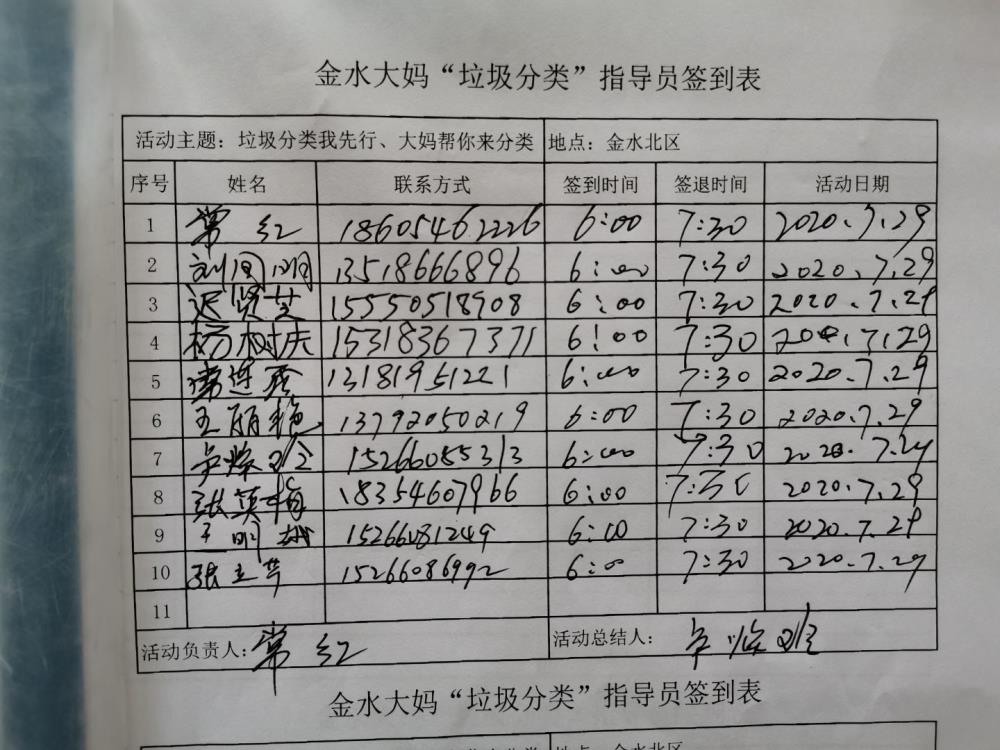 金水大妈“垃圾分类”指导员签到表
活动主题：垃圾分类我先行、大妈帮你来分类 地点：金水北区
序号 姓名 联系方式 签到时间 签退时间 活动日期
1 常红 18605462226 6:00 7:30 2020.7.29
2 13518666896 6:00 7:30 2020.7.29
3 迟贤芝 15550518908 6:00 7:30 2020.7.29
4 杨树庆 15318367371 6:00 7:30 2020.7.29
5 13181951221 6:00 7:30 2020.7.29
6 王丽艳 13792050219 6:00 7:30 2020.7.29
7 15266085313 6:00 7:30 2020.7.29
8 张英梅 18354607966 6:00 7:30 2020.7.29
9 王明 15266081249 6:00 7:30 2020.7.29
10 张立芹 15266086992 6:00 7:30 2020.7.29
11
活动负责人：常红 活动总结人：
金水大妈“垃圾分类”指导员签到表